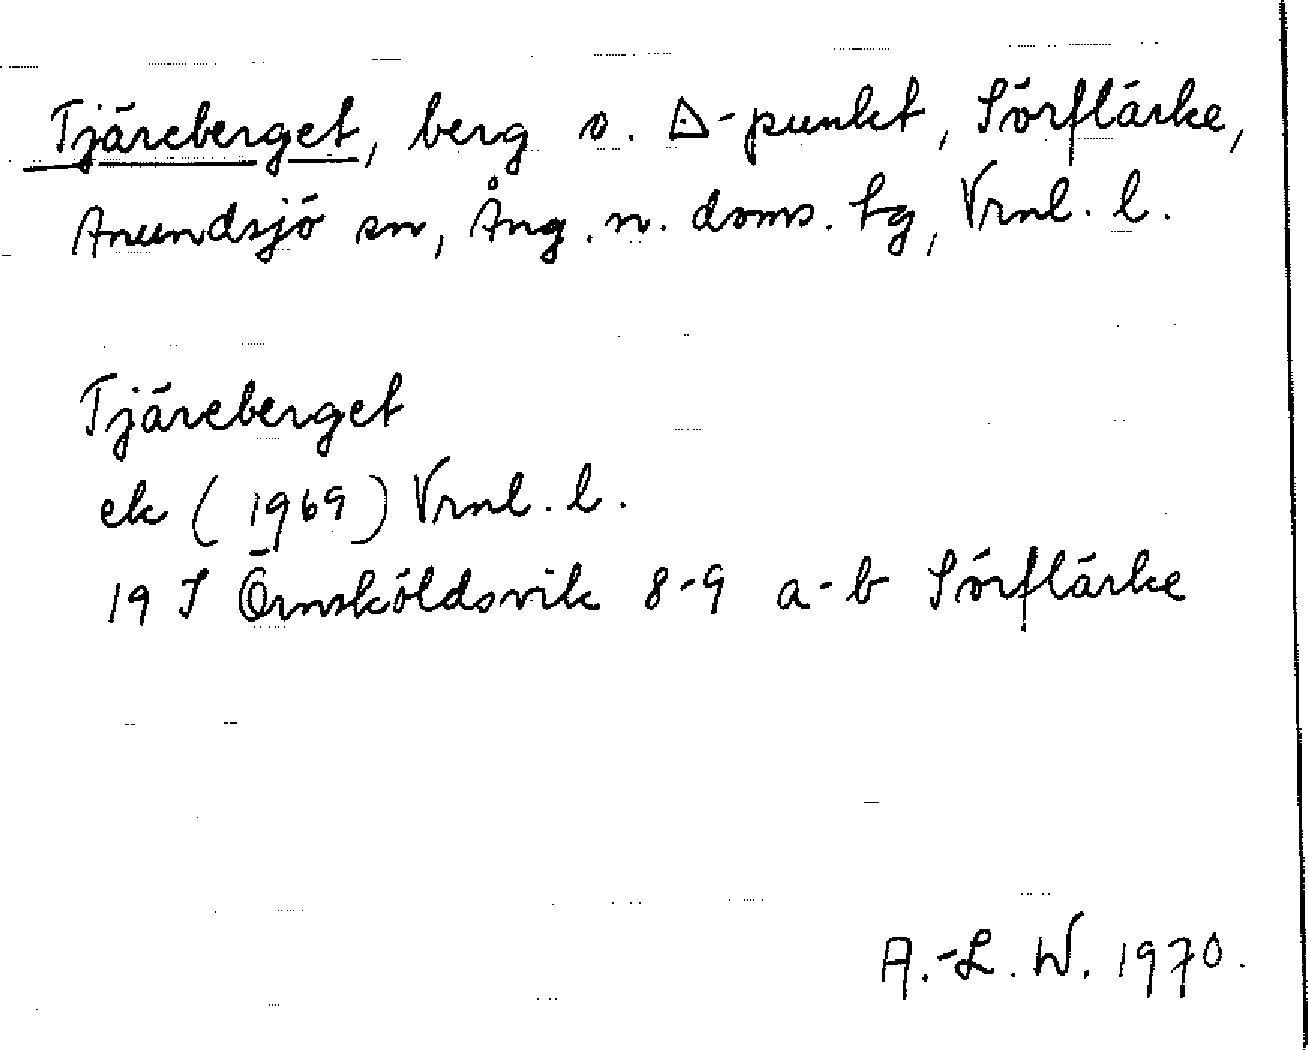 Tjäreberget, berg o. △-punkt, Sörflärke,
Anundsjö sn, Ång. n. doms. tg, Vrnl. l.
Tjäreberget
ek (1969) Vrnl. l.
19 I Örnsköldsvik 8-9 a-b Sörflärke
A.-L. W. 1970.